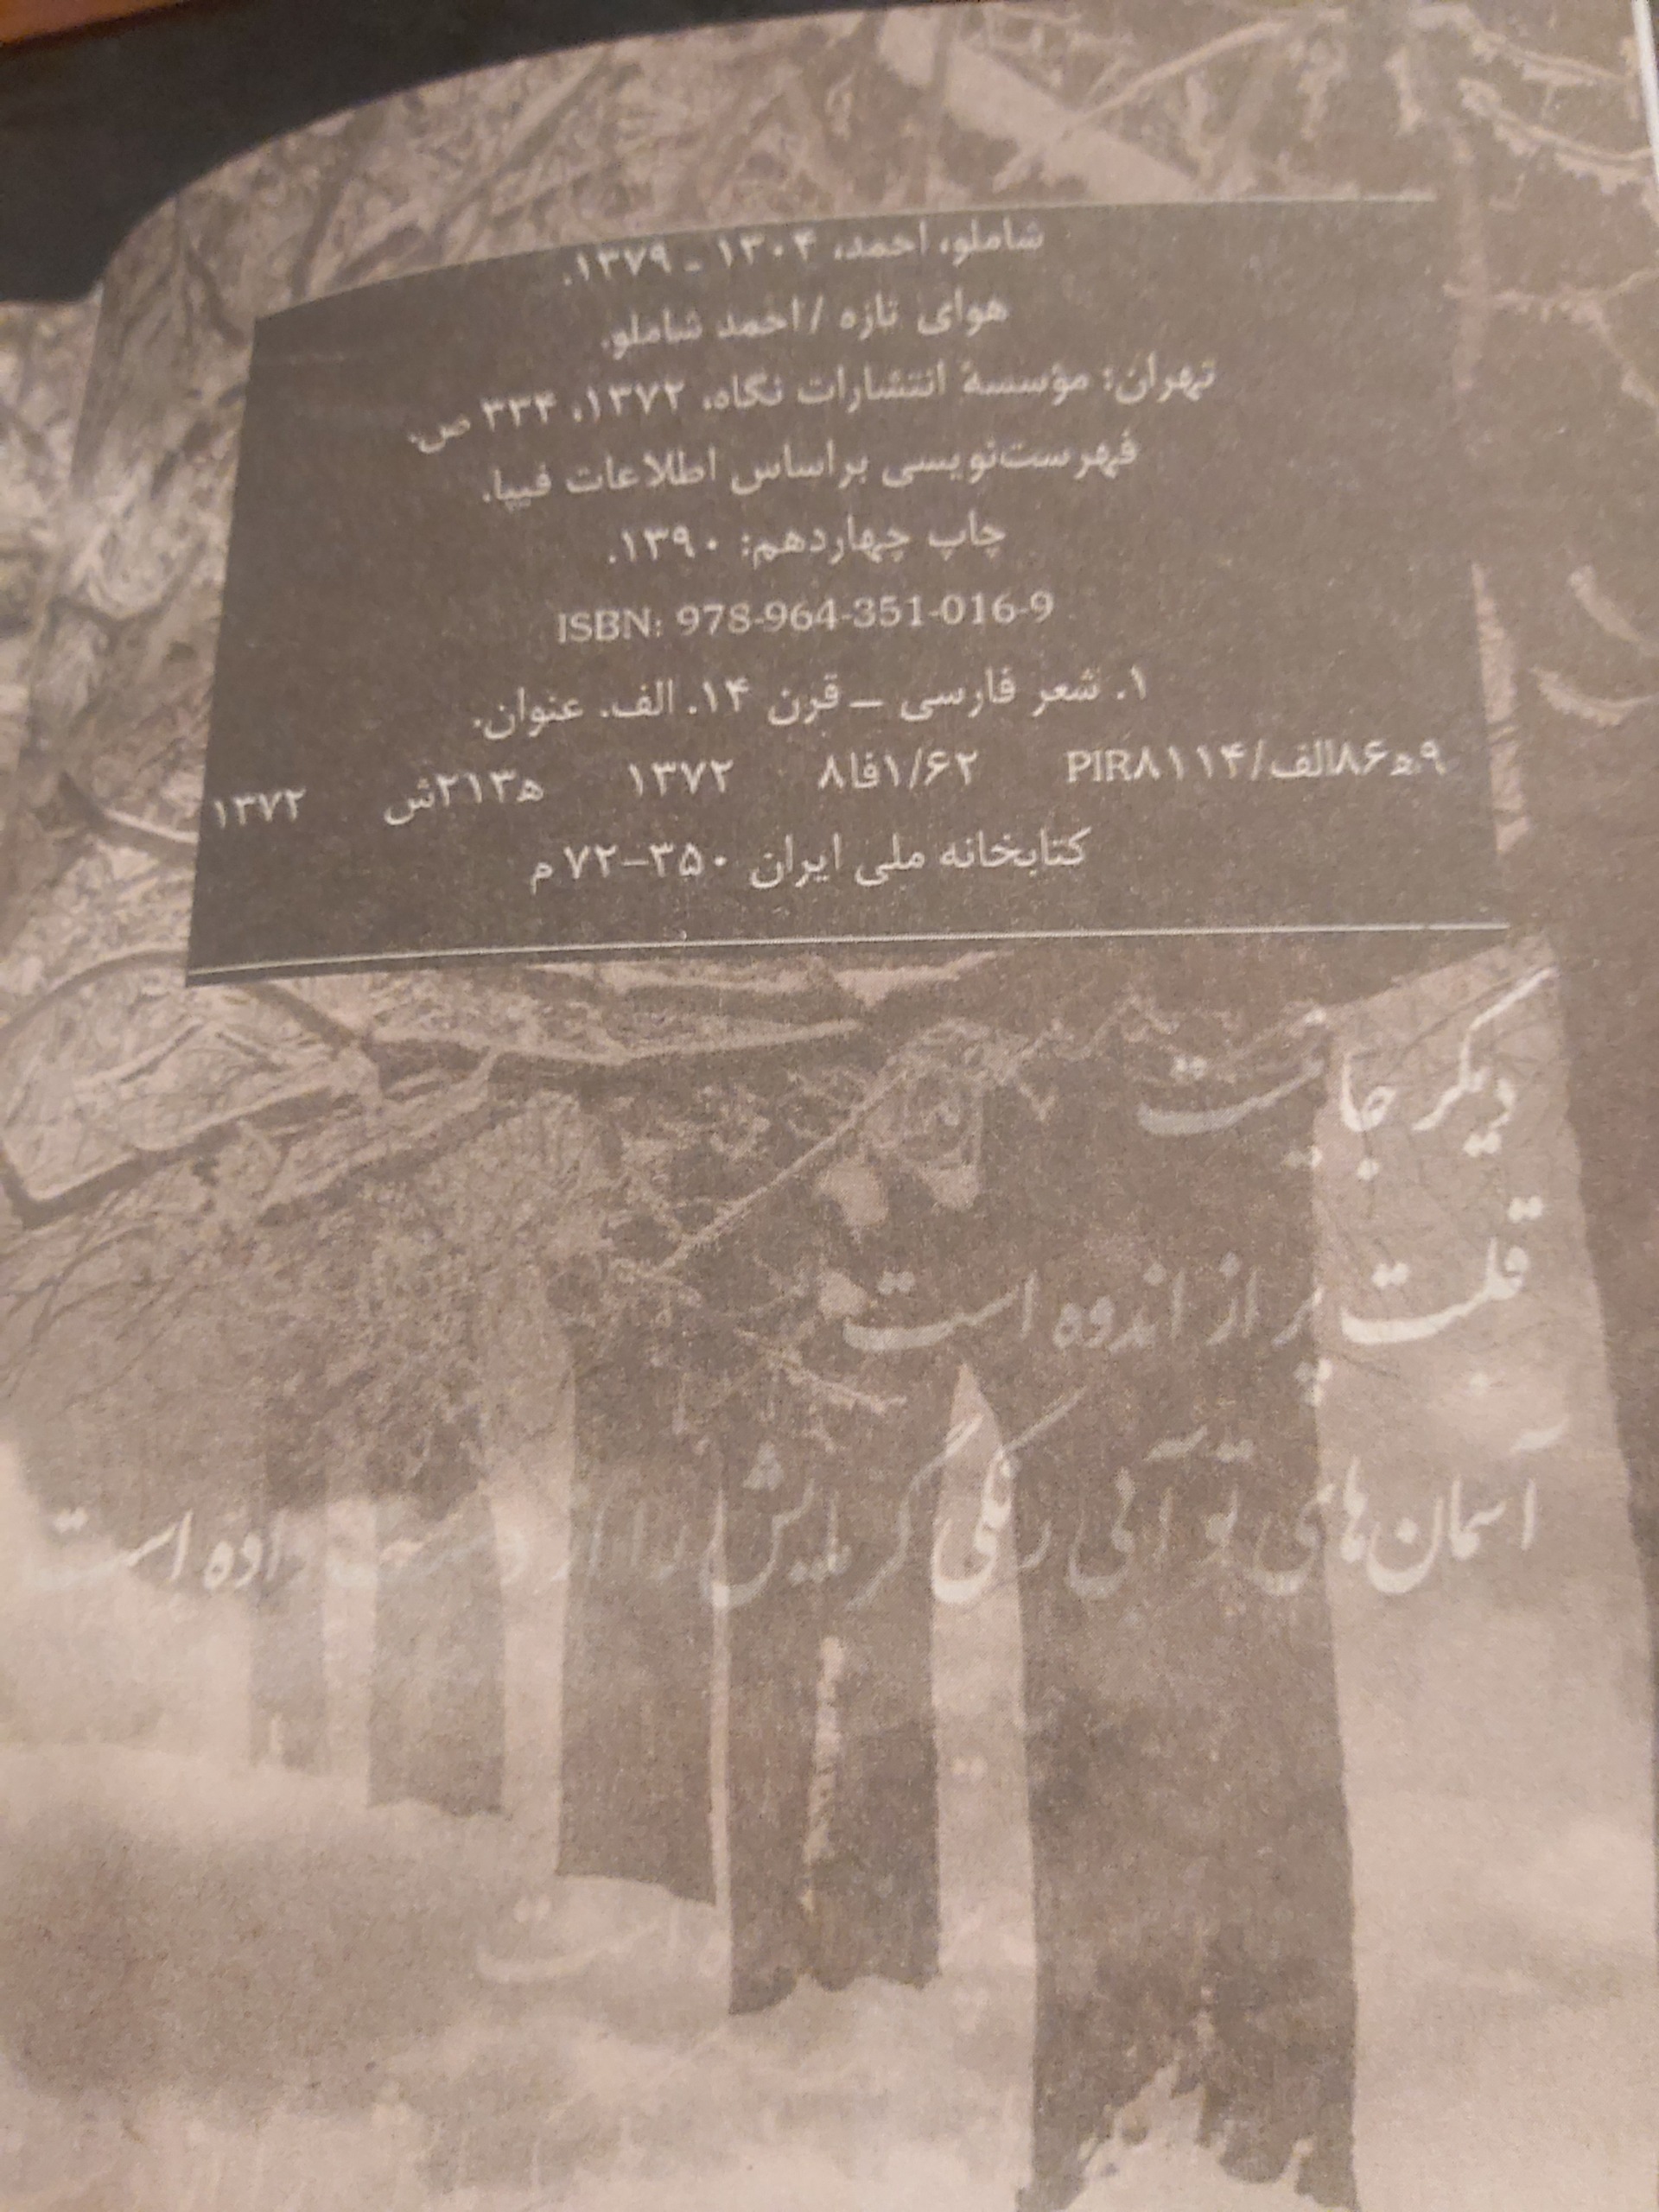 شاملو، احمد، ۱۳۰۴ ـ ۱۳۷۹.
هوای تازه / احمد شاملو.
تهران: مؤسسهٔ انتشارات نگاه، ۱۳۷۲، ۳۳۴ ص.
فهرست‌نویسی براساس اطلاعات فیپا.
چاپ چهاردهم: ۱۳۹۰.
ISBN: 978-964-351-016-9
۱. شعر فارسی ــ قرن ۱۴. الف. عنوان.
۹ھ۸۶الف/PIR۸۱۱۴ ۸فا۱/۶۲ ۱۳۷۲ ھ۲۱۳ش ۱۳۷۲
کتابخانه ملی ایران ۳۵۰–۷۲ م
دیگر جا نیست
قلبت پر از اندوه است
آسمان‌های تو آبی رنگی گرمایش را از دست داده است
است